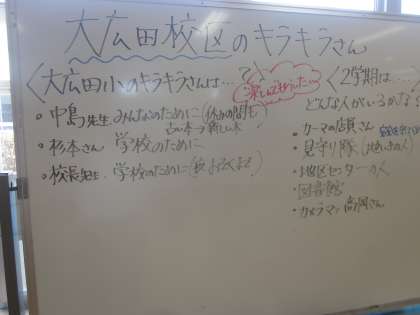 大広田校区のキラキラさん
〈大広田小のキラキラさんは…?〉
・中島先生 みんなのために(休みの間も)
古い本→新しい本
・杉本さん 学校のために
・校長先生 学校のために
〈2学期は…
どんな人がいるかな?
・カーマの店員さん
・見守り隊
・地区センターの人
・図書館
・カメラマン 高岡さん